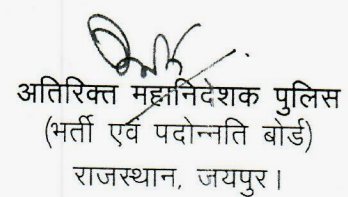 अतिरिक्त महानिदेशक पुलिस
(भर्ती एवं पदोन्नति बोर्ड)
राजस्थान, जयपुर।